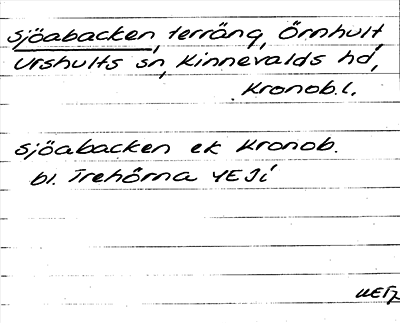 Sjöabacken, terräng, Örnhult,
Urshults sn, Kinnevalds hd,
Kronob.l.
Sjöabacken ek Kronob.
bl. Trehörna 4E5i